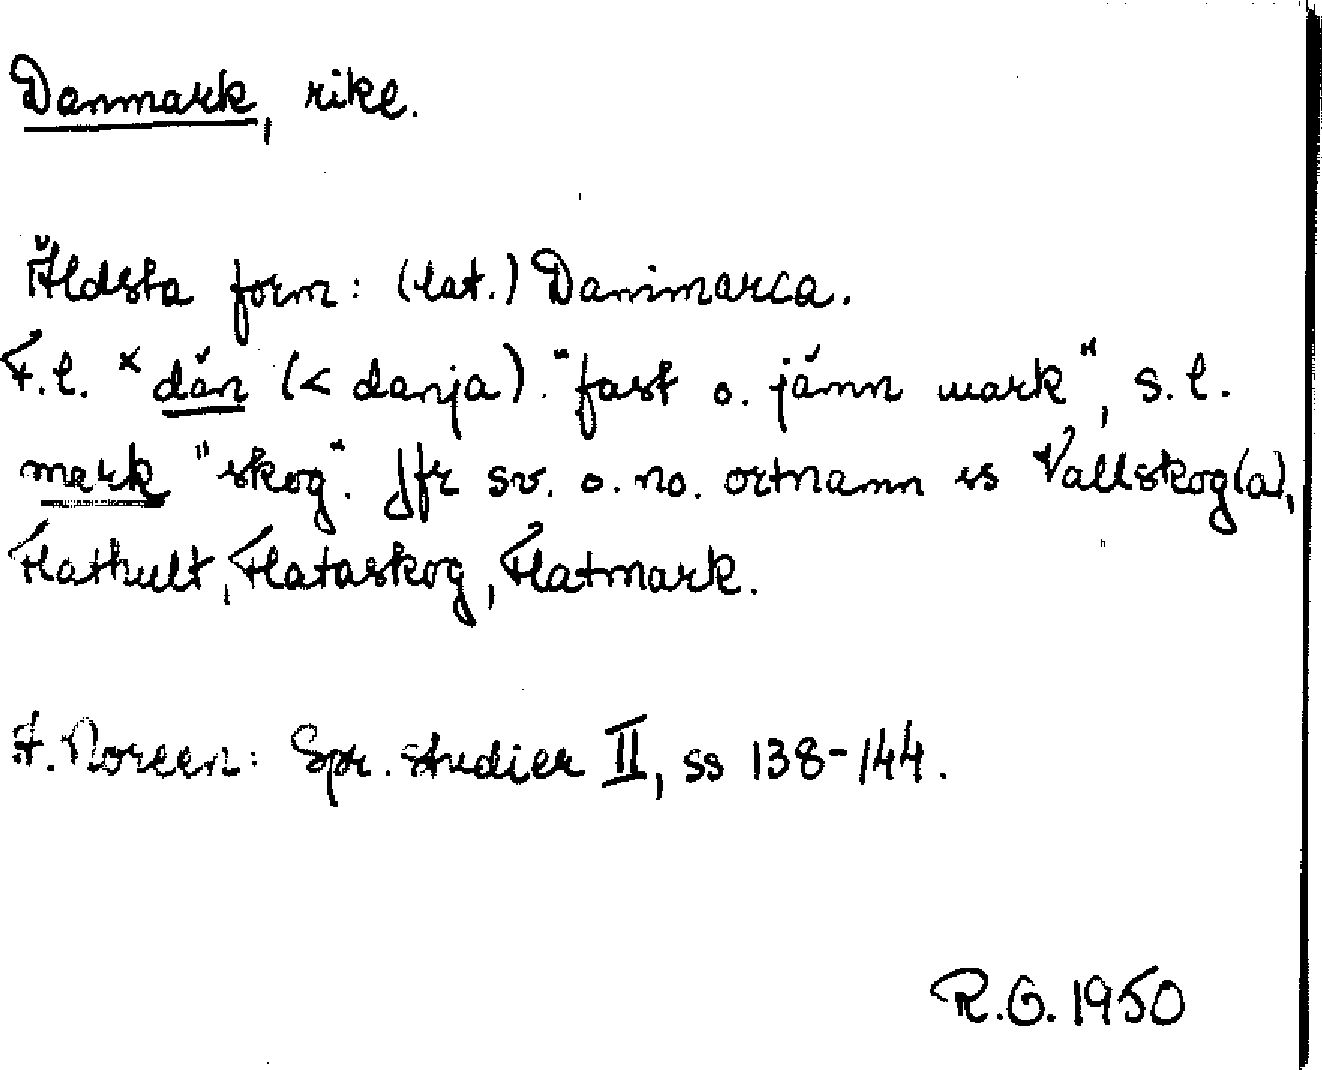 Danmark, rike.
Äldsta form: (lat.) Danimarca.
F.l. *dän (< danja). "fast o. jämn mark", s.l.
mark "skog". Jfr sv. o. no. ortnamn ss Vallskog(a),
Flathult, Flataskog, Flatmark.
A. Noreen: Spr. studier II, ss 138-144.
R.G. 1950